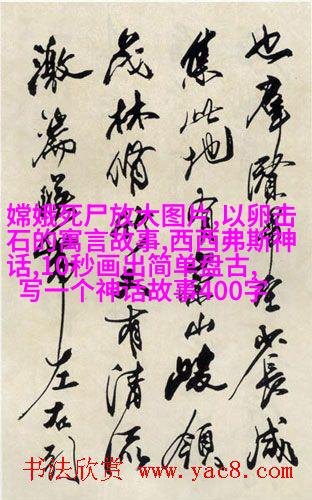 也羣賢畢至少長咸
集此地有崇山峻領
茂林脩竹又有清流
激湍暎帶左右引
嫦娥死尸放大图片,以卵击
石的寓言故事,西西弗斯神
话,10秒画出简单盘古,
写一个神话故事400字
书法欣赏 www.yac8.com